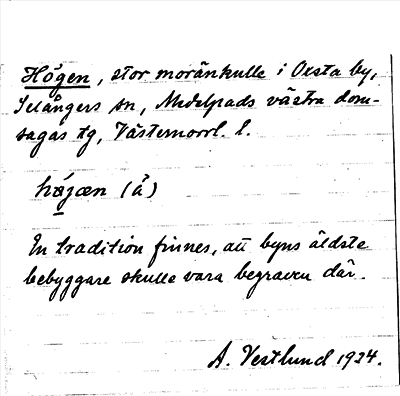 Högen, stor moränkulle i Oxsta by,
Selångers sn, Medelpads västra dom-
sagas tg, Västernorrl. l.
hǿgæn (å)
En tradition finnes, att byns äldste
bebyggare skulle vara begraven där.
A. Vestlund 1924.